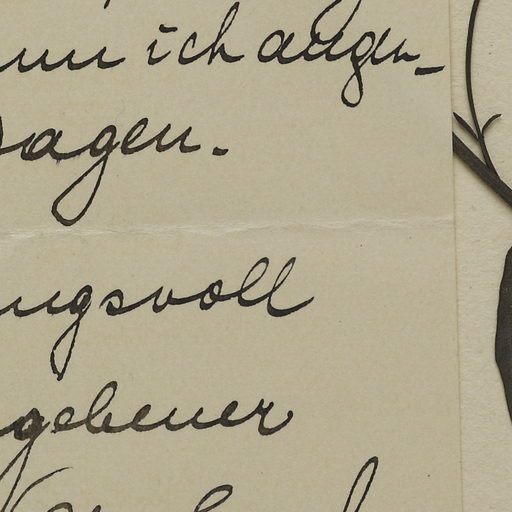 ich augen-
sagen.
ngsvoll
gebener